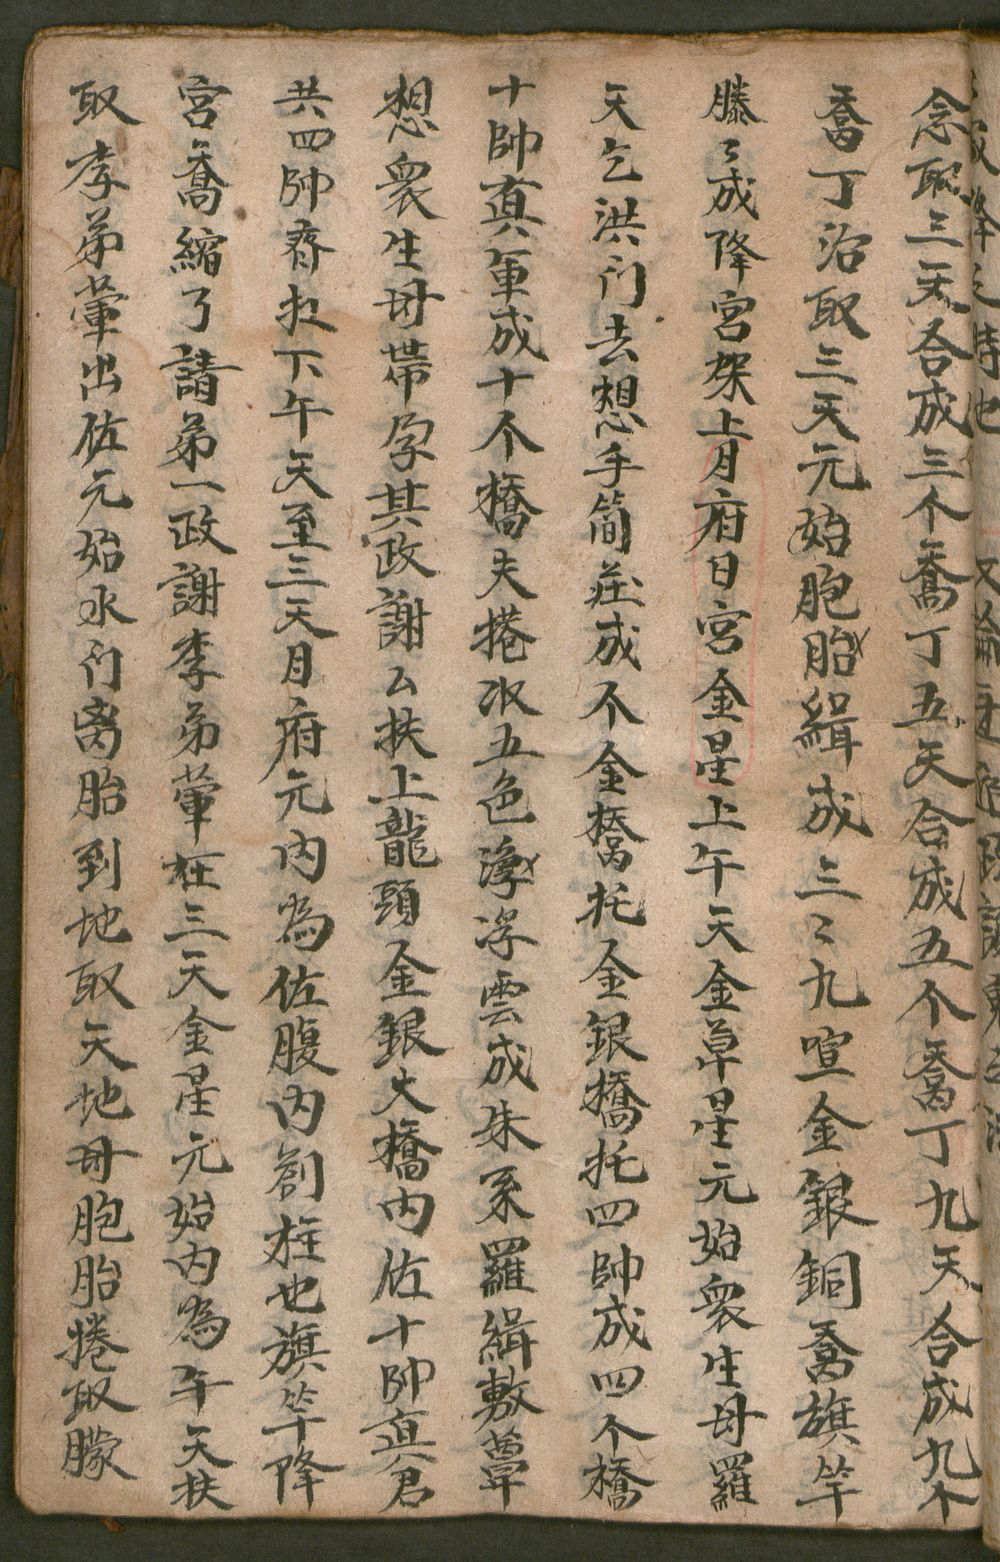 念取三天合成三个喬丁五天合成五个喬丁九天合成九个
喬丁治取三天元始胞胎緝成三〻九喧金銀銅喬旗竿
滕〻成降宮架上月府日宮金星上午天金草星元始衆生毋羅
天乞洪门去想手简莊成个金橋托金銀橋托四帥成四个橋
十帥真軍成十个橋夫捲収五色浮浮雲成朱系羅緝敷蕈
想衆生毋帶孕其政謝公扶上龍頭金銀大橋内佐十帥真君
共四帥齊扗下午天至三天月府元内為佐腹内剏柱也旗竿降
宮喬縮了請弟一政謝李弟葷在三天金星元始内為午天扶
取李弟葷出佐元始水门离胎到地取天地毋胞胎捲取朦